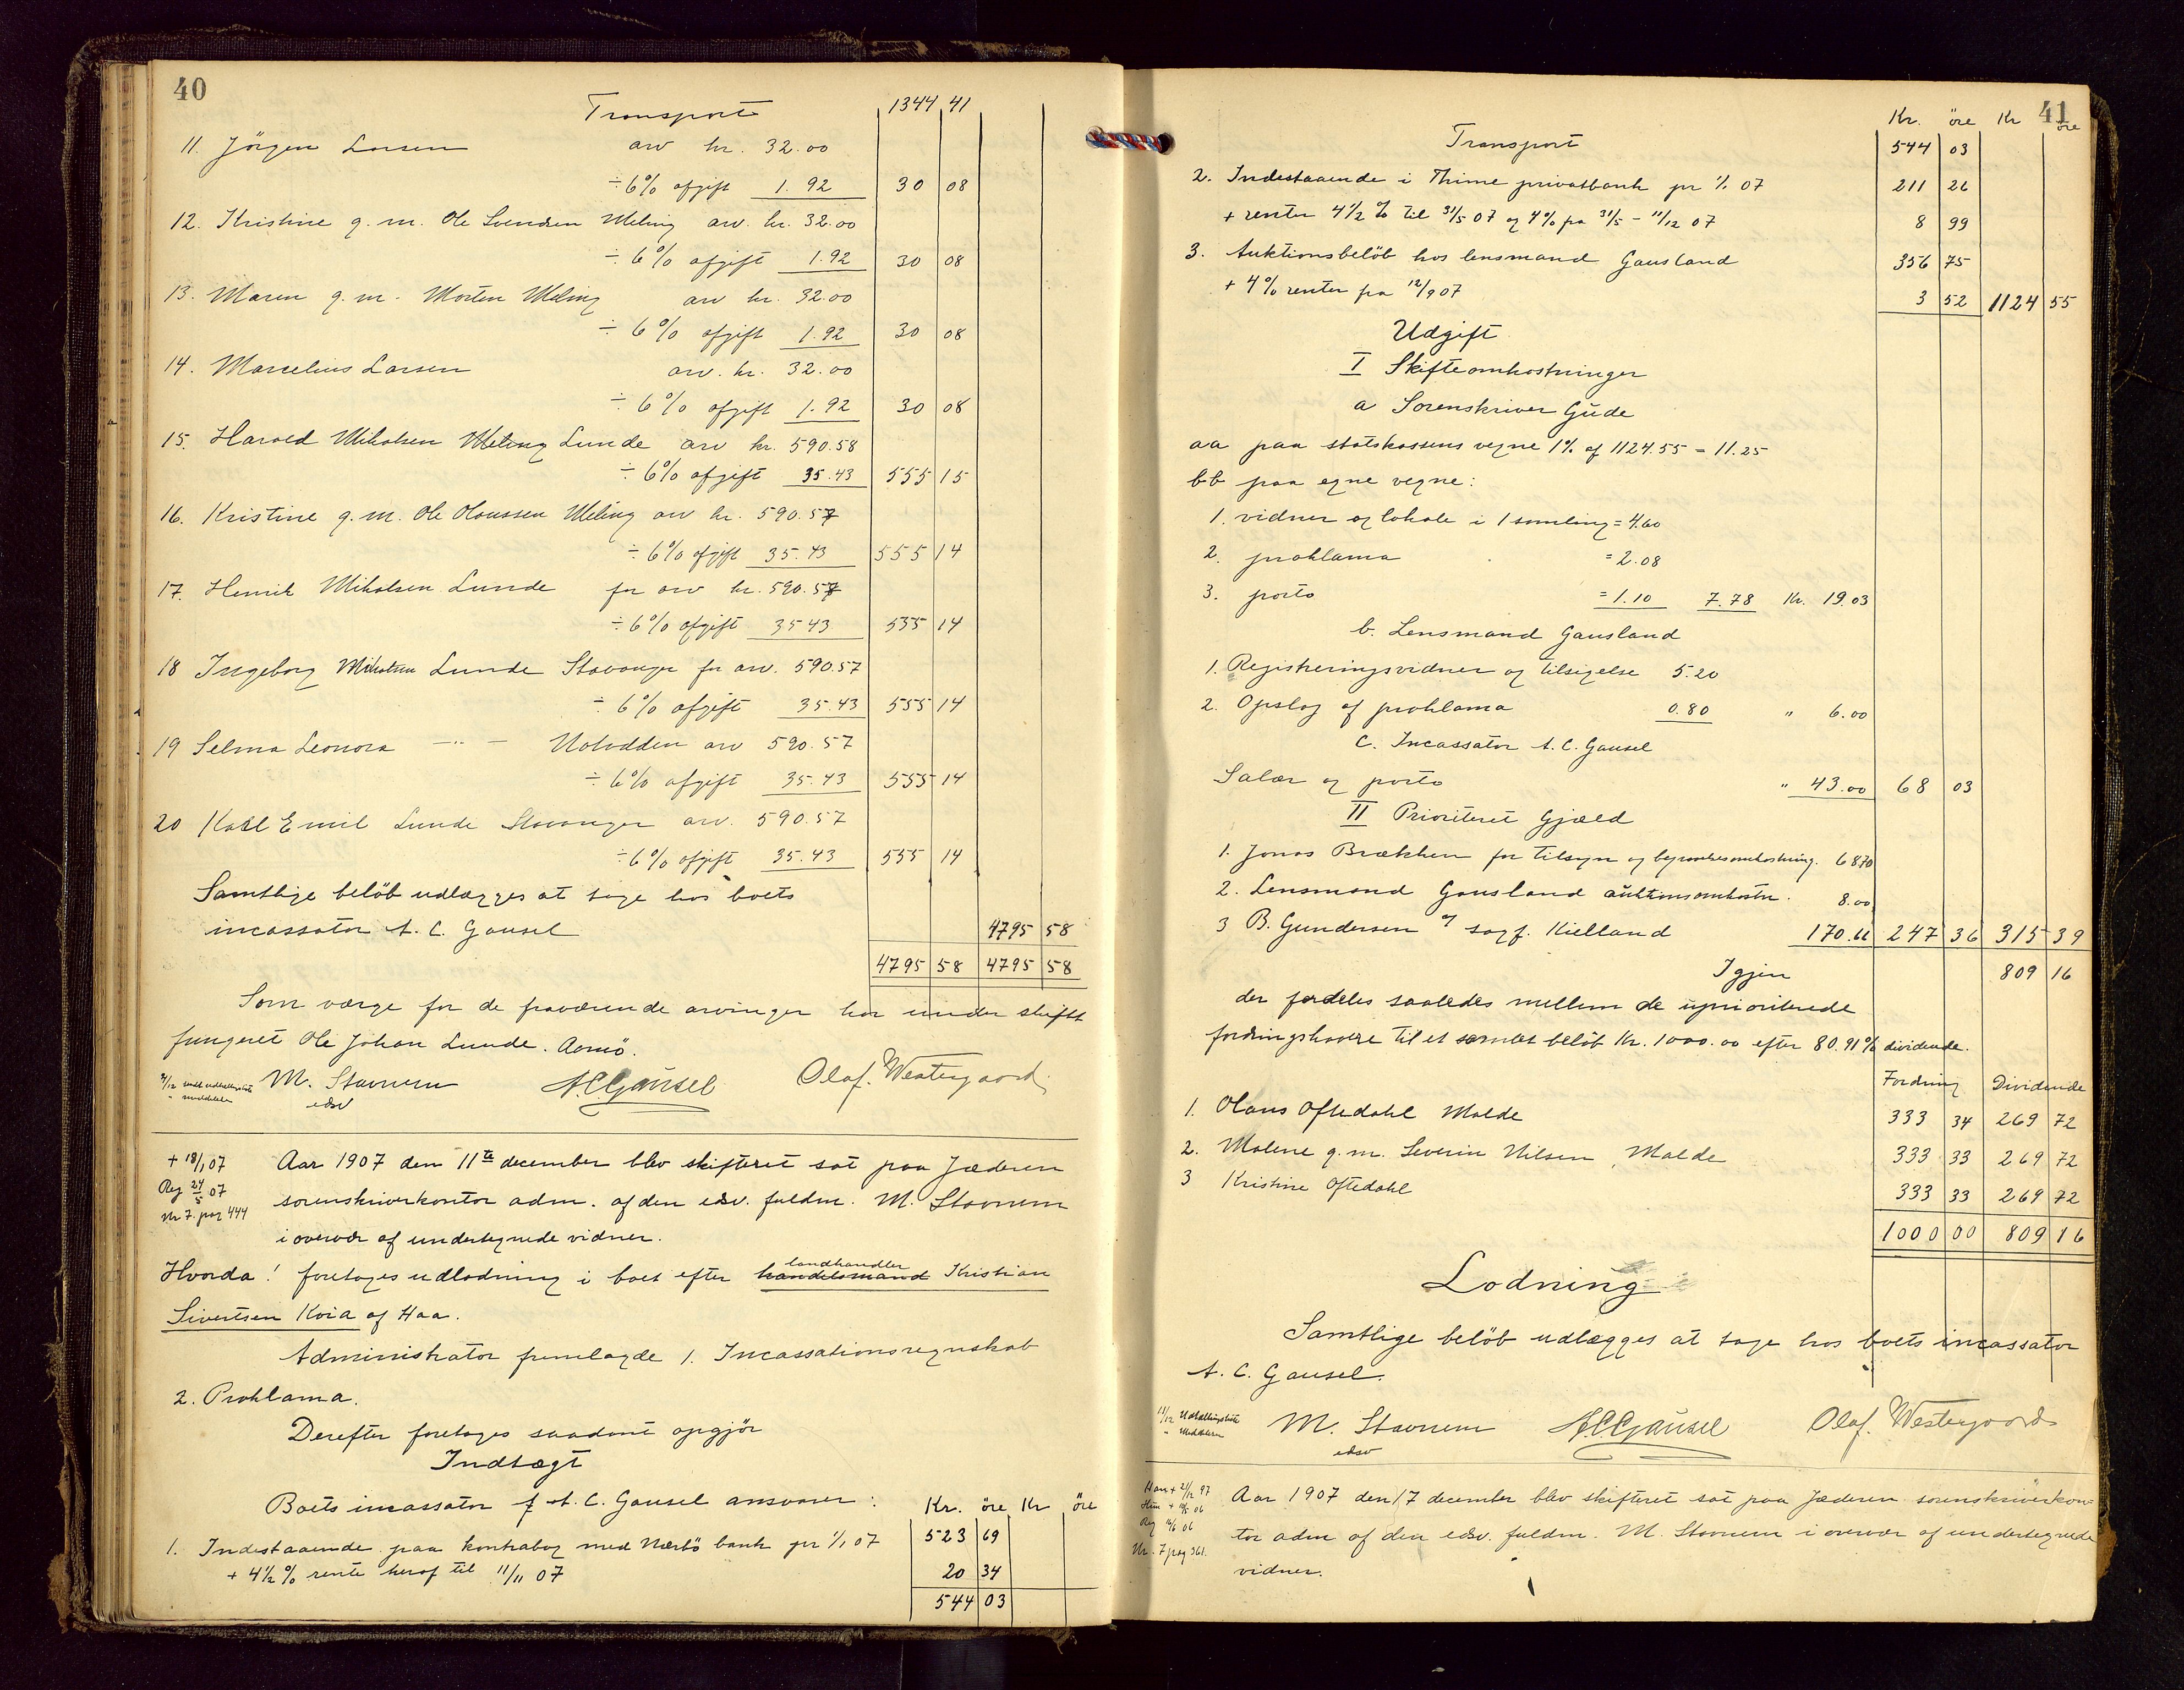 40
Transport 1344 41
11. Jörgen Larsen arv kr. 32.00
÷ 6% afgift 1.92 30 08
12. Kristine g. m. Ole Svendsen Meling arv. kr. 32.00
÷ 6% afgift 1.92 30 08
13. Maren g. m. Morten Meling arv kr. 32.00
÷ 6% afgift 1.92 30 08
14. Marcelius Larsen arv. kr. 32.00
÷ 6% afgift 1.92 30 08
15. Harald Mikalsen Meling Lunde arv kr. 590.58
÷ 6% afgift 35.43 555 15
16. Kristine g. m. Ole Olaussen Meling arv kr. 590.57
÷ 6% afgift 35.43 555 14
17. Henrik Mikalsen Lunde for arv kr. 590.57
÷ 6% afgift 35 43 555 14
18 Ingeborg Mikalsen Lunde Stavanger for arv. 590.57
÷ 6% afgift 35.43 555 14
19 Selma Leonora — " — Notodden arv 590.57
÷ 6% afgift 35.43 555 14
20 Karl Emil Lunde Stavanger arv. 590.57
÷ 6% afgift 35.43 555 14
Samtlige belöb udlægges at tage hos boets
incassator A. C. Gausel 4795 58
4795 58 4795 58
Som værge for de fraværende arvinger har under skiftet
fungeret Ole Johan Lunde.
M. Stavnem A C Gausel Olaf. Westergaard
edsv
+ 18/1 07 Aar 1907 den 11te december blev skifteret sat paa Jæderen
Reg 24/5 07 sorenskriverkontor adm. af den edsv. fuldm. M. Stavnem
Nr 7. pag 444 i overvær af undertegnede vidner.
Hvorda! foretoges udlodning i boet efter handelsmand landhandler Kristian
Sivertsen Koia af Haa.
Administrator fremlagde 1. Incassationsregnskab
2. Proklama.
Derefter foretoges saadant opgjör
Indtægt
Boets incassator A. C. Gausel ansvarer: Kr. öre Kr öre
1. Indestaaende paa kontrabog med Nærbö bank pr 1/1 07 523 69
+ 4 1/2 % rente heraf til 11/11 07 20 34
544 03
41
Kr. öre Kr öre
Transport 544 03
2. Indestaaende i Thime privatbank pr 1/1 07 211 26
+ renter 4 1/2 % til 31/5 07 og 4% fra 31/5 - 11/12 07 8 99
3. Auktionsbelöb hos lensmand Gausland 356 75
+ 4% renter fra 12/9 07 3 52 1124 55
Udgift
I Skifteomkostninger
a Sorenskriver Gude
aa paa statskassens vegne 1% af 1124.55 = 11.25
bb paa egne vegne:
1. vidner og lokale i 1 samling = 4.60
2. proklama = 2.08
3. porto = 1.10 7.78 Kr. 19.03
b. Lensmand Gausland
1. Registreringsvidner og tilsigelse 5.20
2. Opslag af proklama 0.80 " 6.00
C. Incassator A. C. Gausel
Salær og porto " 43.00 68 03
II Prioriteret Gjæld
1. Jonas Brækken for tilsyn og begravelsesomkostning. 68 70
2. Lensmand Gausland auktionsomkostn. 8.00
3 B. Gundersen v/ sagf. Kielland 170.66 247 36 315 39
Igjen 809 16
der fordeles saaledes mellem de uprioriterede
fordringshavere til et samlet belöb Kr. 1000.00 efter 80.91% dividende.
Fordring Dividende
1. Olaus Oftedahl Malde 333 34 269 72
2. Malene g. m. Severin Nilsen, Malde 333 33 269 72
3 Kristine Oftedahl 333 33 269 72
1000 00 809 16
Lodning
Samtlige belöb udlægges at tage hos boets incassator
A. C. Gausel.
M. Stavnem A C Gausel Olaf. Westergaard
edsv
Aar 1907 den 17 december blev skifteret sat paa Jæderen sorenskriverkon-
tor adm af den edsv. fuldm. M. Stavnem i overvær af undertegnede
Nr. 7 pag 361. vidner.